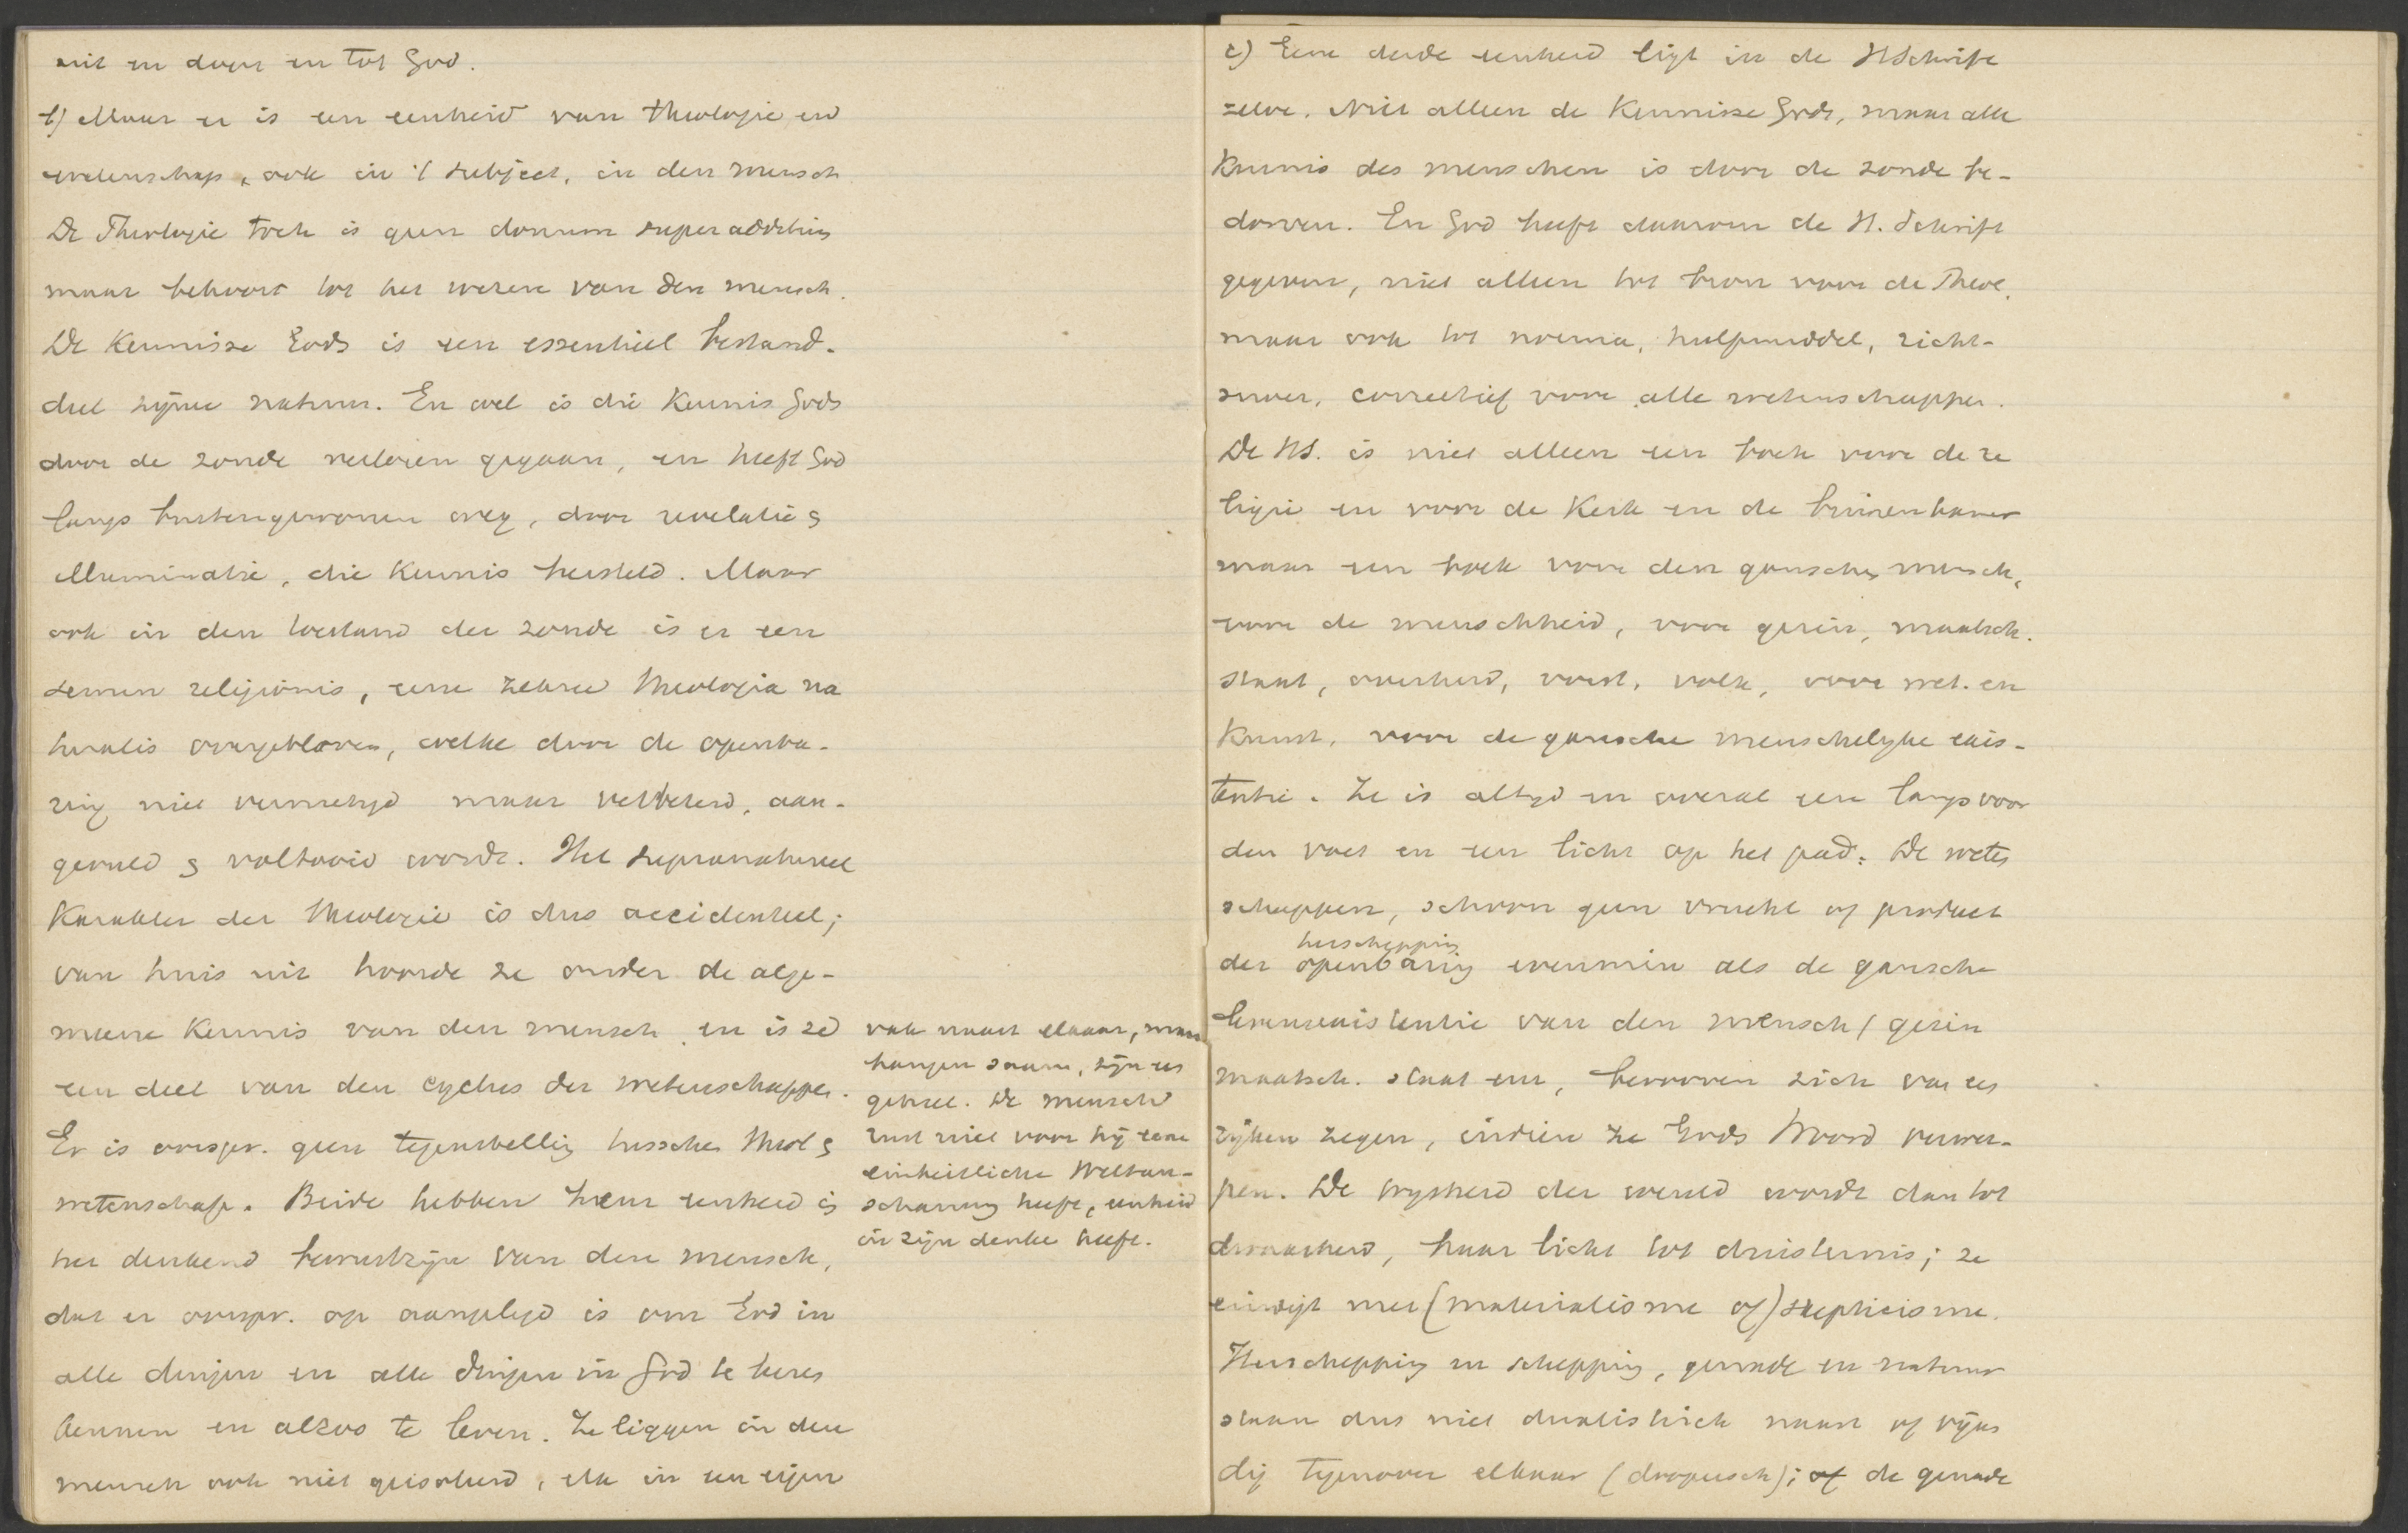 uit en door en tot God.
b) Maar er is een eenheid van theologie en
wetenschap, ook in 't subject, in den mensch
De Theologie toch is geen donum superadditum
maar behoort tot het wezen van den mensch.
De Kennisse Gods is een essentieel bestand-
deel zijner natuur. En wel is die Kennis Gods
door de zonde verloren gegaan, en heeft God
langs buitengewonen weg, door revelatie &
illuminatie, die Kennis hersteld. Maar
ook in den toestand der zonde is er een
semen religionis, eene zekere theologia na
turalis overgebleven, welke door de openba-
ring niet vernietigd maar verbeterd, aan-
gevuld & voltooid wordt. Het supranatureel
Karakter der theologie is dus accidenteel;
van huis uit hoorde ze onder de alge-
meene Kennis van den mensch, en is ze
een deel van den cyclus der wetenschappen.
Er is oorspr. geen tegenstelling tusschen theol &
wetenschap. Beide hebben haar eenheid in
het denkend bewustzijn van den mensch,
dat er oorspr. op aangelegd is om God in
alle dingen en alle dingen in God te leeren
kennen en alzoo te leven. Ze liggen in den
mensch ook niet geisoleerd, elk in een eigen
vak naast elkaar, maar
hangen saam, zijn een
geheel. De mensch
rust niet voor hij eene
einheitliche Weltan-
schauung heeft, eenheid
in zijn denken heeft.
c) Eene derde eenheid ligt in de HSchrift
zelve. Niet alleen de Kennisse Gods, maar alle
Kennis des menschen is door de zonde be-
dorven. En God heeft daarom de H. Schrift
gegeven, niet alleen tot bron voor de Theol.
maar ook tot norma, hulpmiddel, richt-
snoer, correctief voor alle wetenschappen.
De HS. is niet alleen een boek voor de re
ligie en voor de Kerk en de binnenkamer
maar een boek voor den ganschen mensch,
voor de menschheid, voor gezin, maatsch.
staat, overheid, vorst, volk, voor wet. en
Kunst, voor de gansche menschelijke exis-
tentie. Ze is altijd en overal een lamp voor
den voet en een licht op het pad. De weten
schappen, schoon geen vrucht of product
herschepping
der openbaring evenmin als de gansche
levensexistentie van den mensch / gezin
maatsch. staat enz, berooven zich van een
rijken zegen, indien ze Gods Woord verwer-
pen. De wijsheid der wereld wordt dan tot
dwaasheid, haar licht tot duisternis; ze
eindigt met (materialisme of) skepticisme.
Herschepping en schepping, genade en natuur
staan dus niet dualistisch naast of vijan
dig tegenover elkaar (doopersch); of de genade